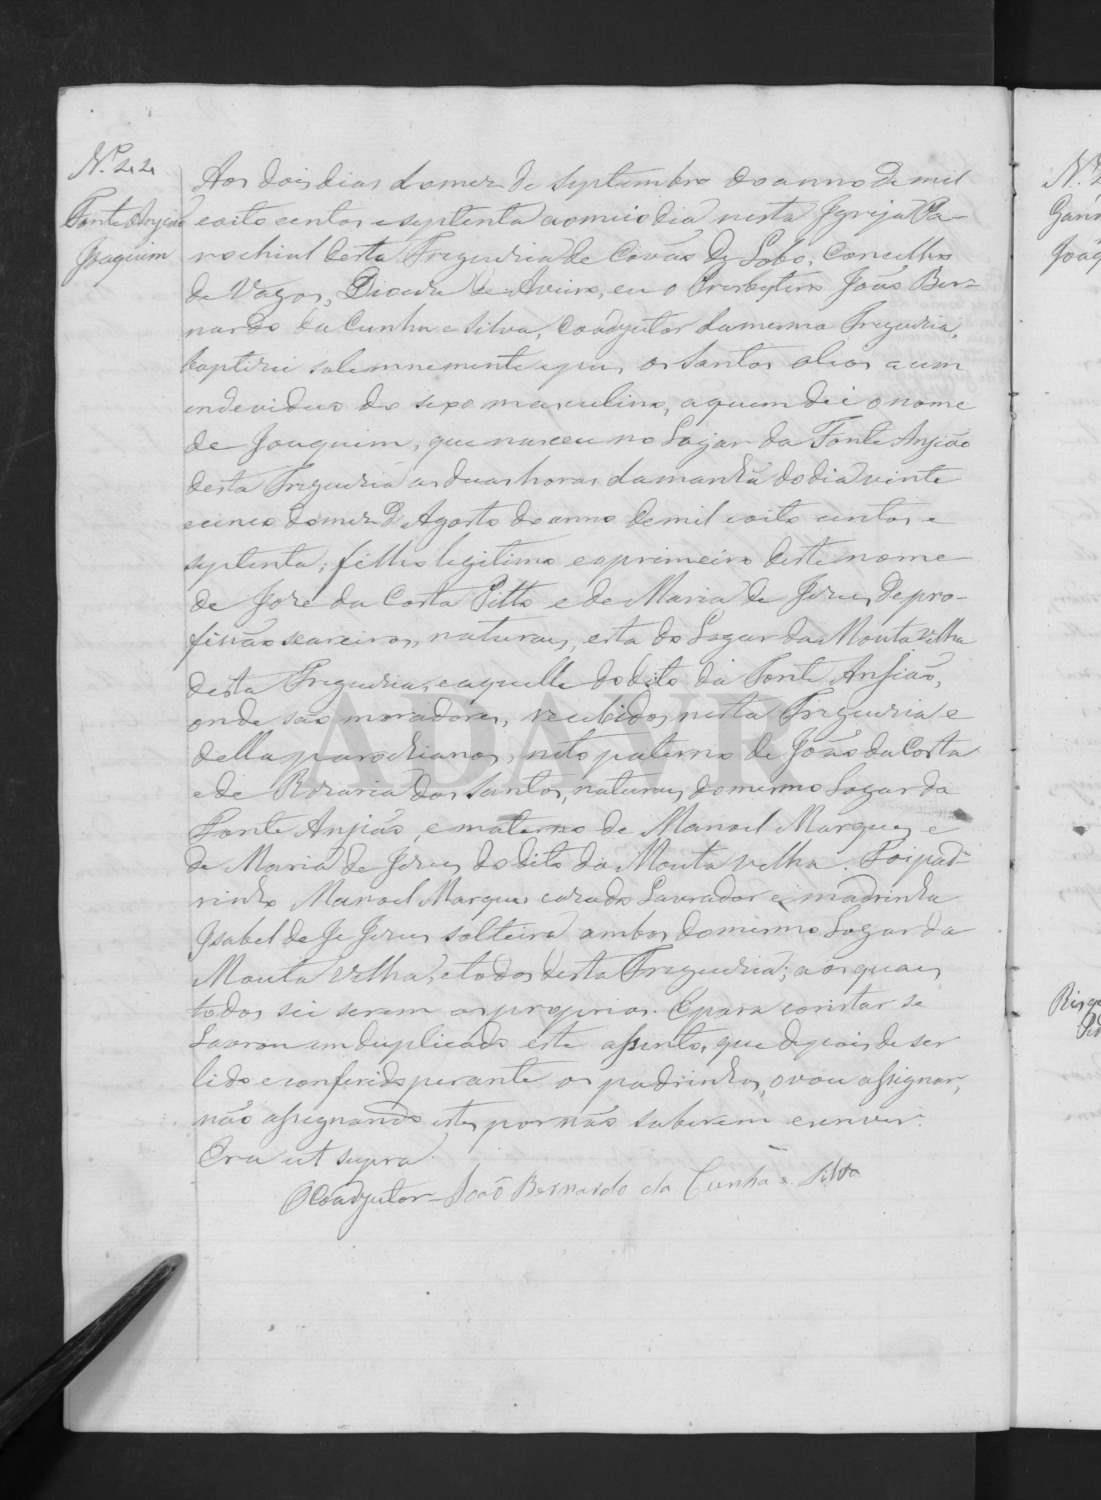 N.º 22
Fonte Anjião
Joaquim
Aos dois dias do mez de Septembro do anno de mil
e oito centos e septenta ao meio dia nesta Igreja Pa-
rochial desta Freguezia de Covão do Lobo, Concelho
de Vagos, Diocese de Aveiro, eu o Presbytero João Ber-
nardo da Cunha e Silva, Coadjutor da mesma Freguezia,
baptizei solemnemente e puz os Santos oleos a um
endeviduo do sexo masculino, a quem dei o nome
de Joaquim, que nasceu no Lugar da Fonte Anjião
desta Freguezia as duas horas da manhã do dia vinte
e cinco do mez d'Agosto do anno de mil e oito centos e
septenta; filho legitimo e o primeiro deste nome
de José da Costa Pitto e de Maria de Jezus, de pro-
fissão seareiros, naturaes, esta do Lugar da Mouta Velha
desta Freguezia, e aquelle do dito da Fonte Anjião,
onde são moradores, recebidos nesta Freguezia e
della parochianos, neto paterno de João da Costa
e de Rozaria dos Santos, naturaes do mesmo Lugar da
Fonte Anjião, e materno de Manoel Marques e
de Maria de Jezus do dito da Mouta Velha. Foi pad-
rinho Manoel Marques cazado Lavrador e madrinha
Izabel de Je Jezus solteira ambos do mesmo Lugar da
Mouta Velha, e todos desta Freguezia; aos quaes
todos sei serem os proprios. E para constar se
Lavrou em duplicado este assento, que depois de ser
lido e conferido perante os padrinhos, o vou assignar,
não assignando estes por não saberem escrever.
Era ut supra.
O Coadjutor João Bernardo da Cunha e Silva
ADAVR